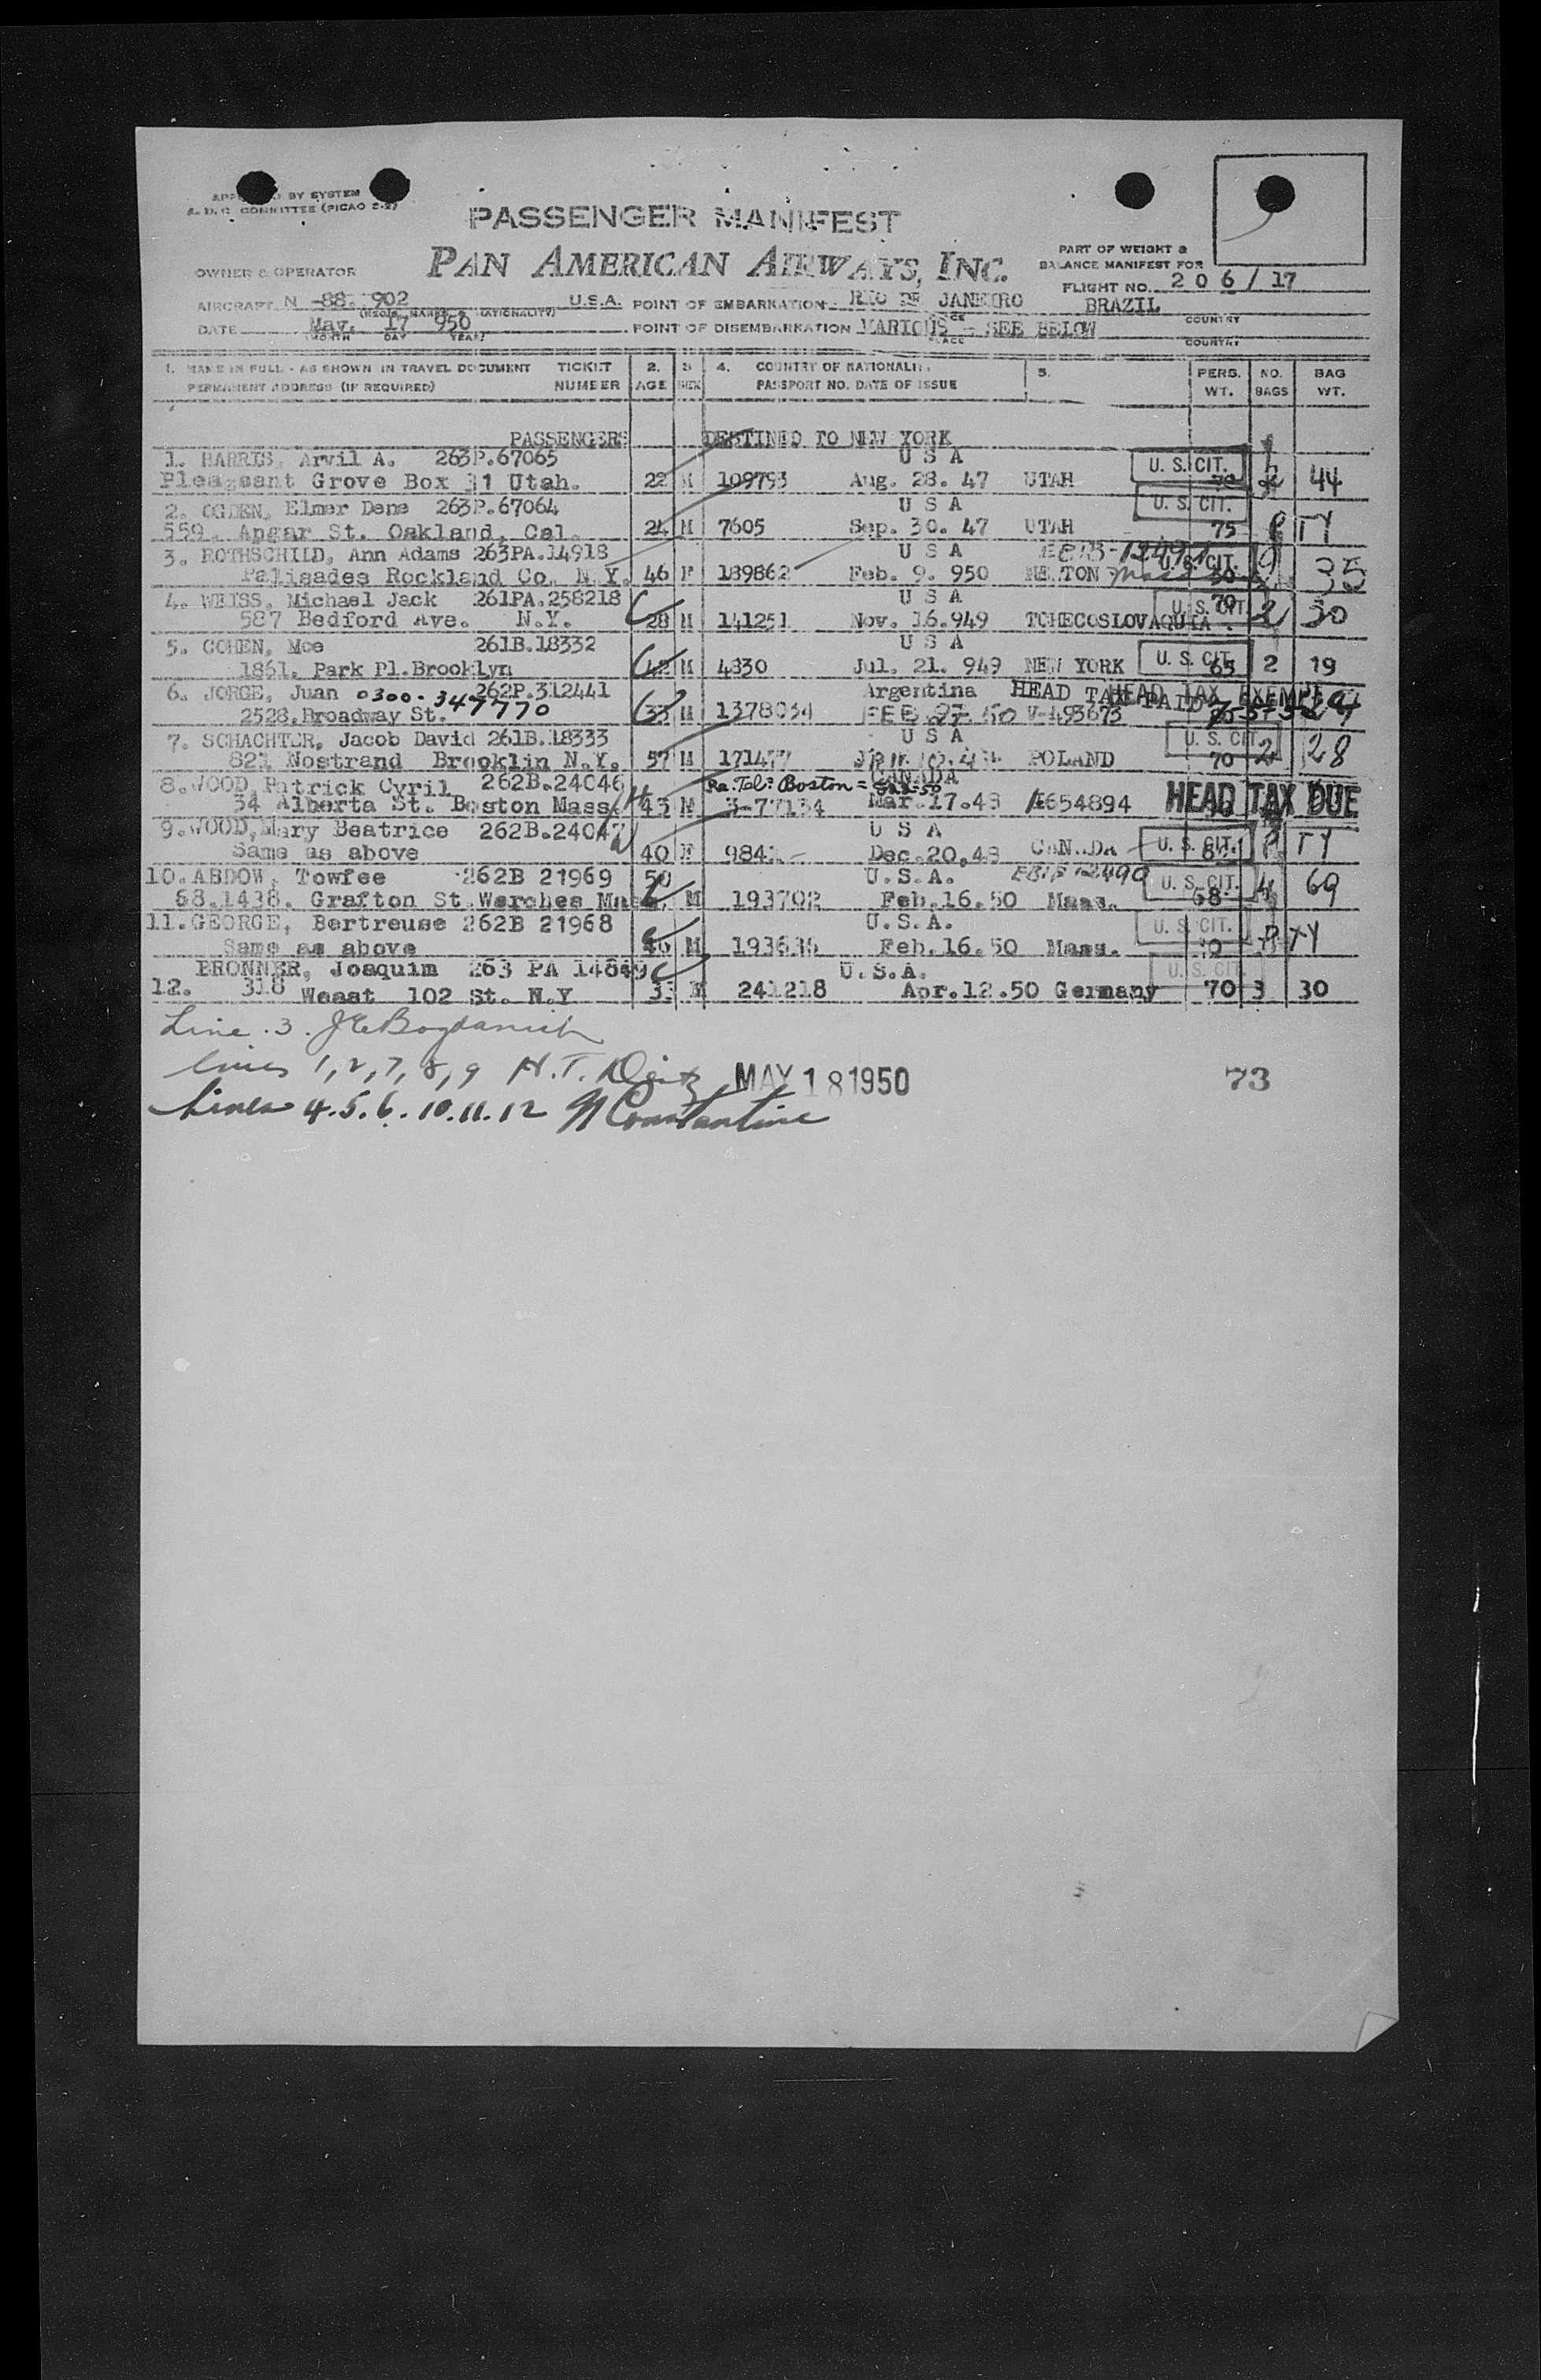 BY SYSTEM
A. D. C. COMMITTEE (PICAO 2-2)
PASSENGER MANIFEST
PAN AMERICAN AIRWAYS, INC.
OWNER & OPERATOR
PART OF WEIGHT &
BALANCE MANIFEST FOR
FLIGHT NO. 206/17
AIRCRAFT N -88. 902 U.S.A. POINT OF EMBARKATION RIO DE JANEIRO BRAZIL
(REGIS. MARKS & NATIONALITY) PLACE COUNTRY
DATE May. 17 950 POINT OF DISEMBARKATION VARIOUS - SEE BELOW
(MONTH DAY YEAR) PLACE COUNTRY
1. NAME IN FULL - AS SHOWN IN TRAVEL DOCUMENT TICKET 2. 3 4. COUNTRY OF NATIONALITY 5. PERS. NO. BAG
PERMANENT ADDRESS (IF REQUIRED) NUMBER AGE SEX PASSPORT NO. DATE OF ISSUE WT. BAGS WT.
PASSENGERS DESTINED TO NEW YORK
1. HARRIS, Arvil A. 263P.67065 U S A U. S. CIT.
Pleagsant Grove Box 31 Utah. 22 M 109793 Aug. 28. 47 UTAH 44
2. OGDEN, Elmer Dene 263P.67064 U S A U. S. CIT.
559. Apgar St. Oakland, Cal. 24 M 7605 Sep. 30. 47 UTAH 75 P TY
3. ROTHSCHILD, Ann Adams 263PA.14918 U S A U. S. CIT.
Palisades Rockland Co. N.Y. 46 F 189862 Feb. 9. 950 NEWTON Mass 50 35
4. WEISS, Michael Jack 261PA.258218 U S A U. S. CIT.
587 Bedford Ave. N.Y. 28 M 141251 Nov. 16.949 TCHECOSLOVAQUIA 70 2 30
5. COHEN, Moe 261B.18332 U S A U. S. CIT.
1861. Park Pl.Brooklyn 42 M 4830 Jul. 21. 949 NEW YORK 65 2 19
6. JORGE, Juan 0300-347770 262P.312441 Argentina HEAD TAX PAID HEAD TAX EXEMPT
2528.Broadway St. 33 M 1378034 FEB 27 50 V-493673
7. SCHACHTER, Jacob David 261B.18333 U S A U. S. CIT.
821 Nostrand Brooklin N.Y. 57 M 171477 POLAND 70 2 28
8.WOOD, Patrick Cyril 262B.24046 Ra. Tel: Boston = CANADA
34 Alberta St. Boston Mass 43 M 3-77134 Mar.17.48 A654894 HEAD TAX DUE
9.WOOD,Mary Beatrice 262B.24047 U S A U. S. CIT.
Same as above 40 F Dec.20,48 CANADA P TY
10.ABDOW, Towfee 262B 21969 50 U.S.A. U. S. CIT.
68.1438. Grafton St.Worches M 193702 Feb.16.50 Mass. 68 4 69
11.GEORGE, Bertreuse 262B 21968 U.S.A. U. S. CIT.
Same as above M 193636 Feb.16.50 Mass. P TY
BRONNER, Joaquim 263 PA 14849 U.S.A. U. S. CIT.
12. 318 Weast 102 St. N.Y M 241218 Apr.12.50 Germany 70 3 30
Line 3. J E Bogdanich
lines 1,2,7,8,9 H.T. MAY 18 1950 73
Lines 4.5.6.10.11.12 N Constantine